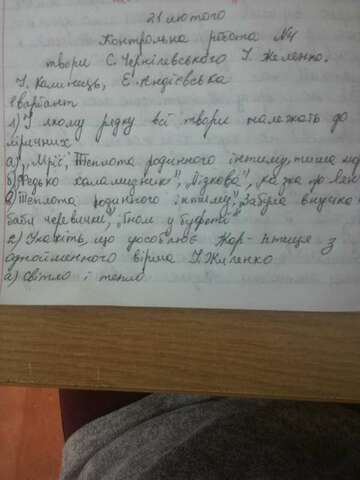 21 лютого
Контрольна робота №4
твори С. Чернілевського І. Жиленко.
І. Калинець, Е. Андієвська
І варіант
1) У якому рядку всі твори належать до
ліричних
а) "Мрії", "Теплота родинного інтиму,
б) Федько халамидник", "Лізкова", казка про
в) Теплота родинного інтиму", Забула внучка
баби черевички, "Гном у буфеті"
2) Укажіть, що уособлює Жар-птиця з
однойменного вірша І. Жиленко
а) світло і тепло